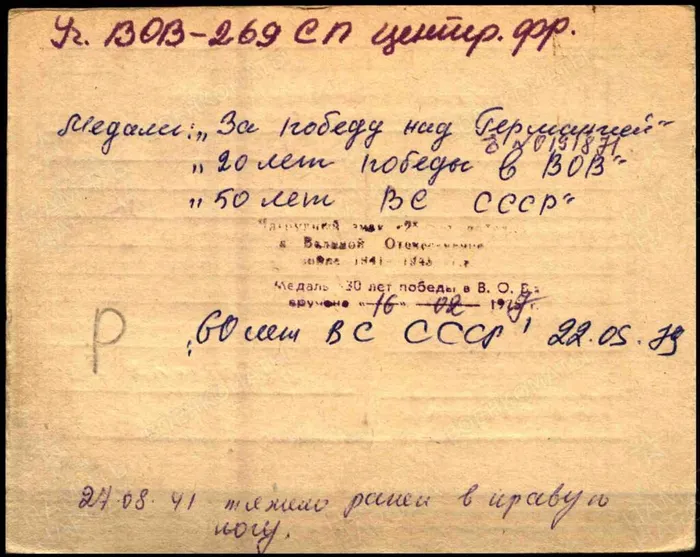 Уч. ВОВ-269 СП центр. фр.
Медали: „За победу над Германией“
„20 лет победы в ВОВ“
„50 лет ВС СССР“
Нагрудный знак «25 лет победы
в Великой Отечественной
войне 1941-1945 г.г.
Медаль «30 лет победы в В. О. В.»
вручена «16» 02 1977 г.
Р
„60 лет ВС СССР“ 22.05.79
24.08.41 тяжело ранен в правую
ногу.